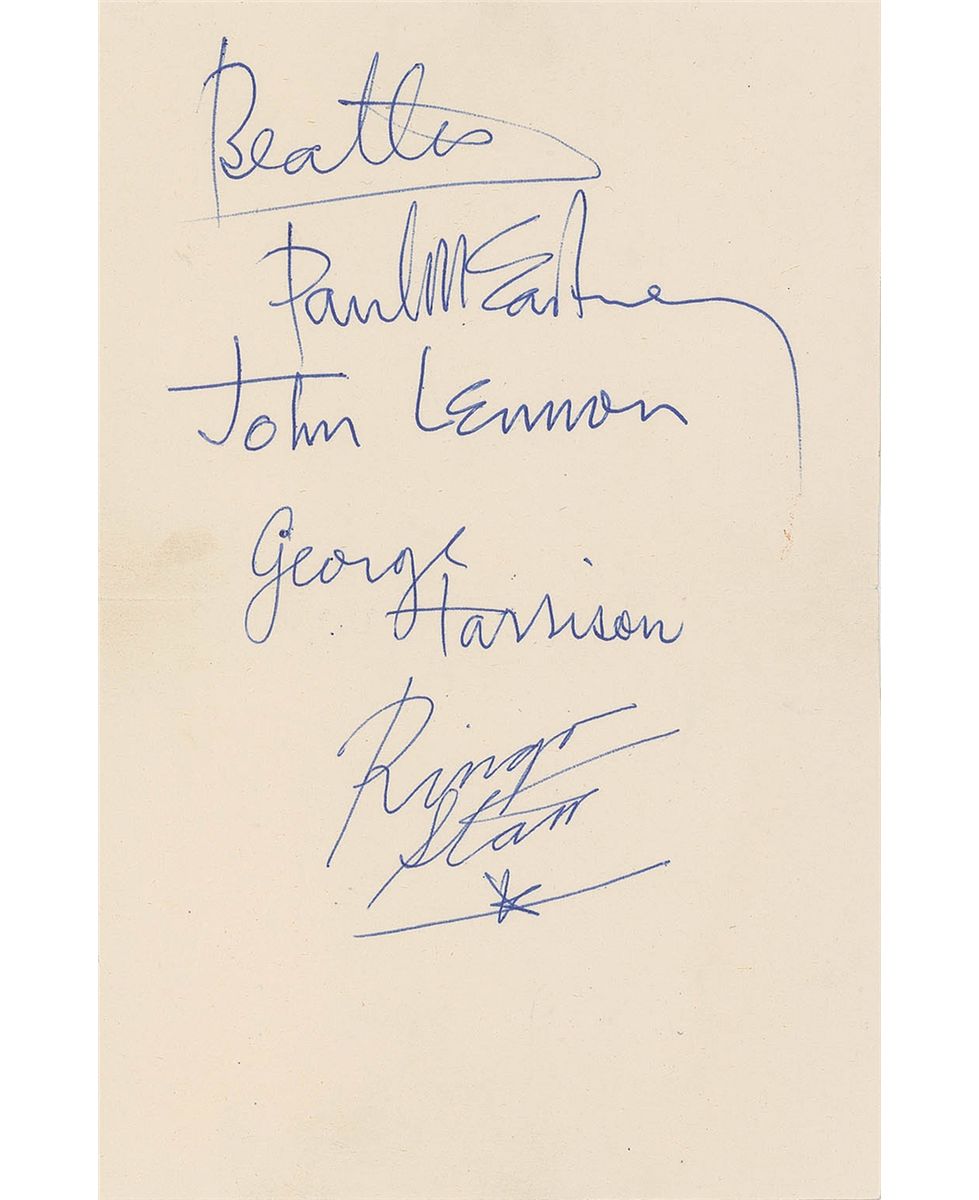 Beatles
Paul McCartney
John Lennon
George
Harrison
Ringo
Starr